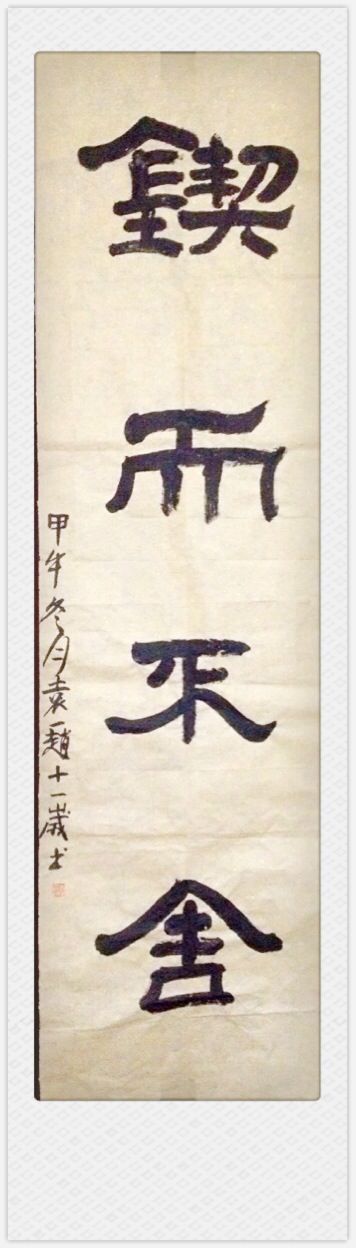 锲而不舍
甲午冬月袁一趙十一歲书